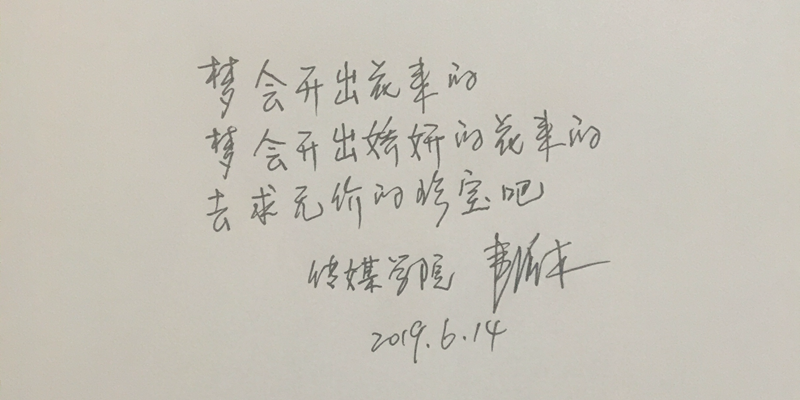 梦会开出花来的
梦会开出娇妍的花来的
去求无价的珍宝吧
传媒学院
2019.6.14